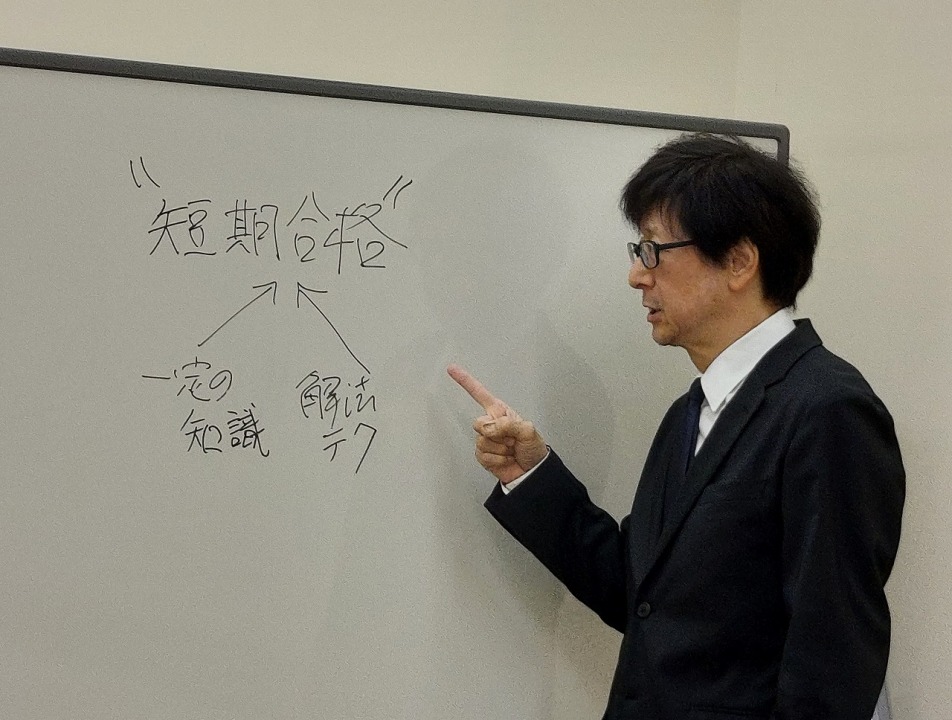 "短期合格"
一定の
知識
解法
テク